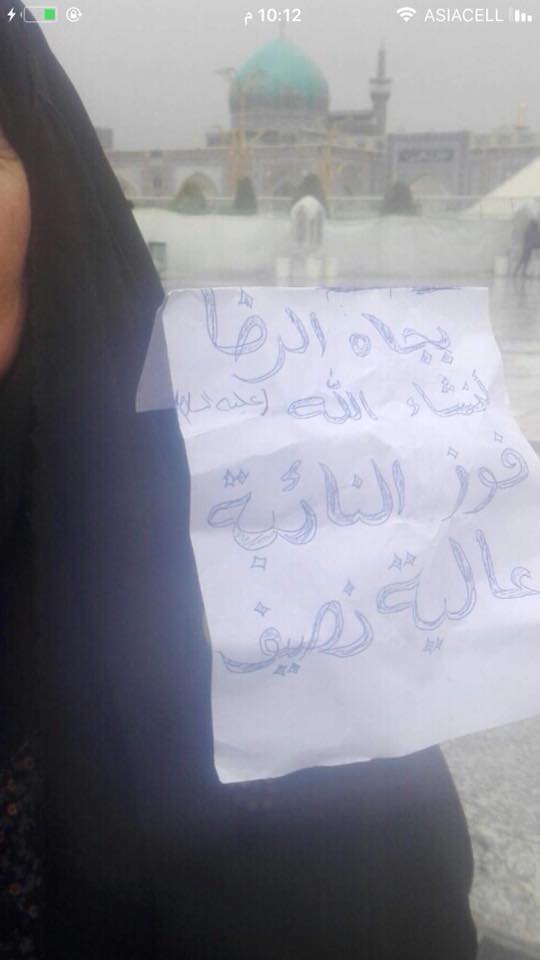 10:12 م
ASIACELL
بجاه الرضا
أنشاء الله (عليه السلام)
فوز النائبة
عالية نصيف